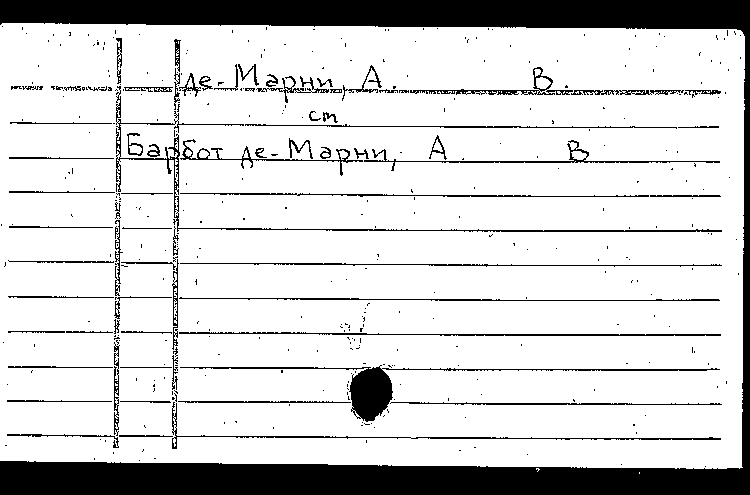 де-Марни, А. В.
ст
Барбот де-Марни, А В